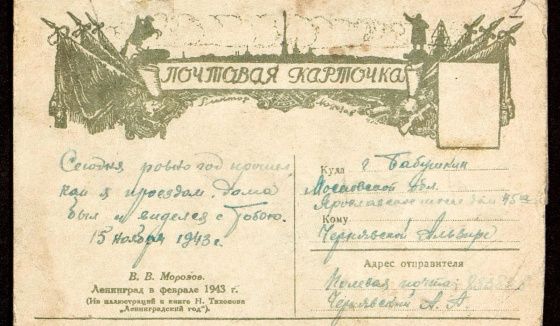 1
ПОЧТОВАЯ КАРТОЧКА
Сегодня ровно год прошел,
как я проездом дома
был и виделся с Тобою.
15 ноября 1943 г.
В. В. Морозов.
Ленинград в феврале 1943 г.
(Из иллюстраций к книге Н. Тихонова
„Ленинградский год“).
Куда г. Бабушкин
Московской обл.
Ярославское шоссе дом
Кому
Чернявской Эльвире
Адрес отправителя
Полевая почта
Чернявский А. А.